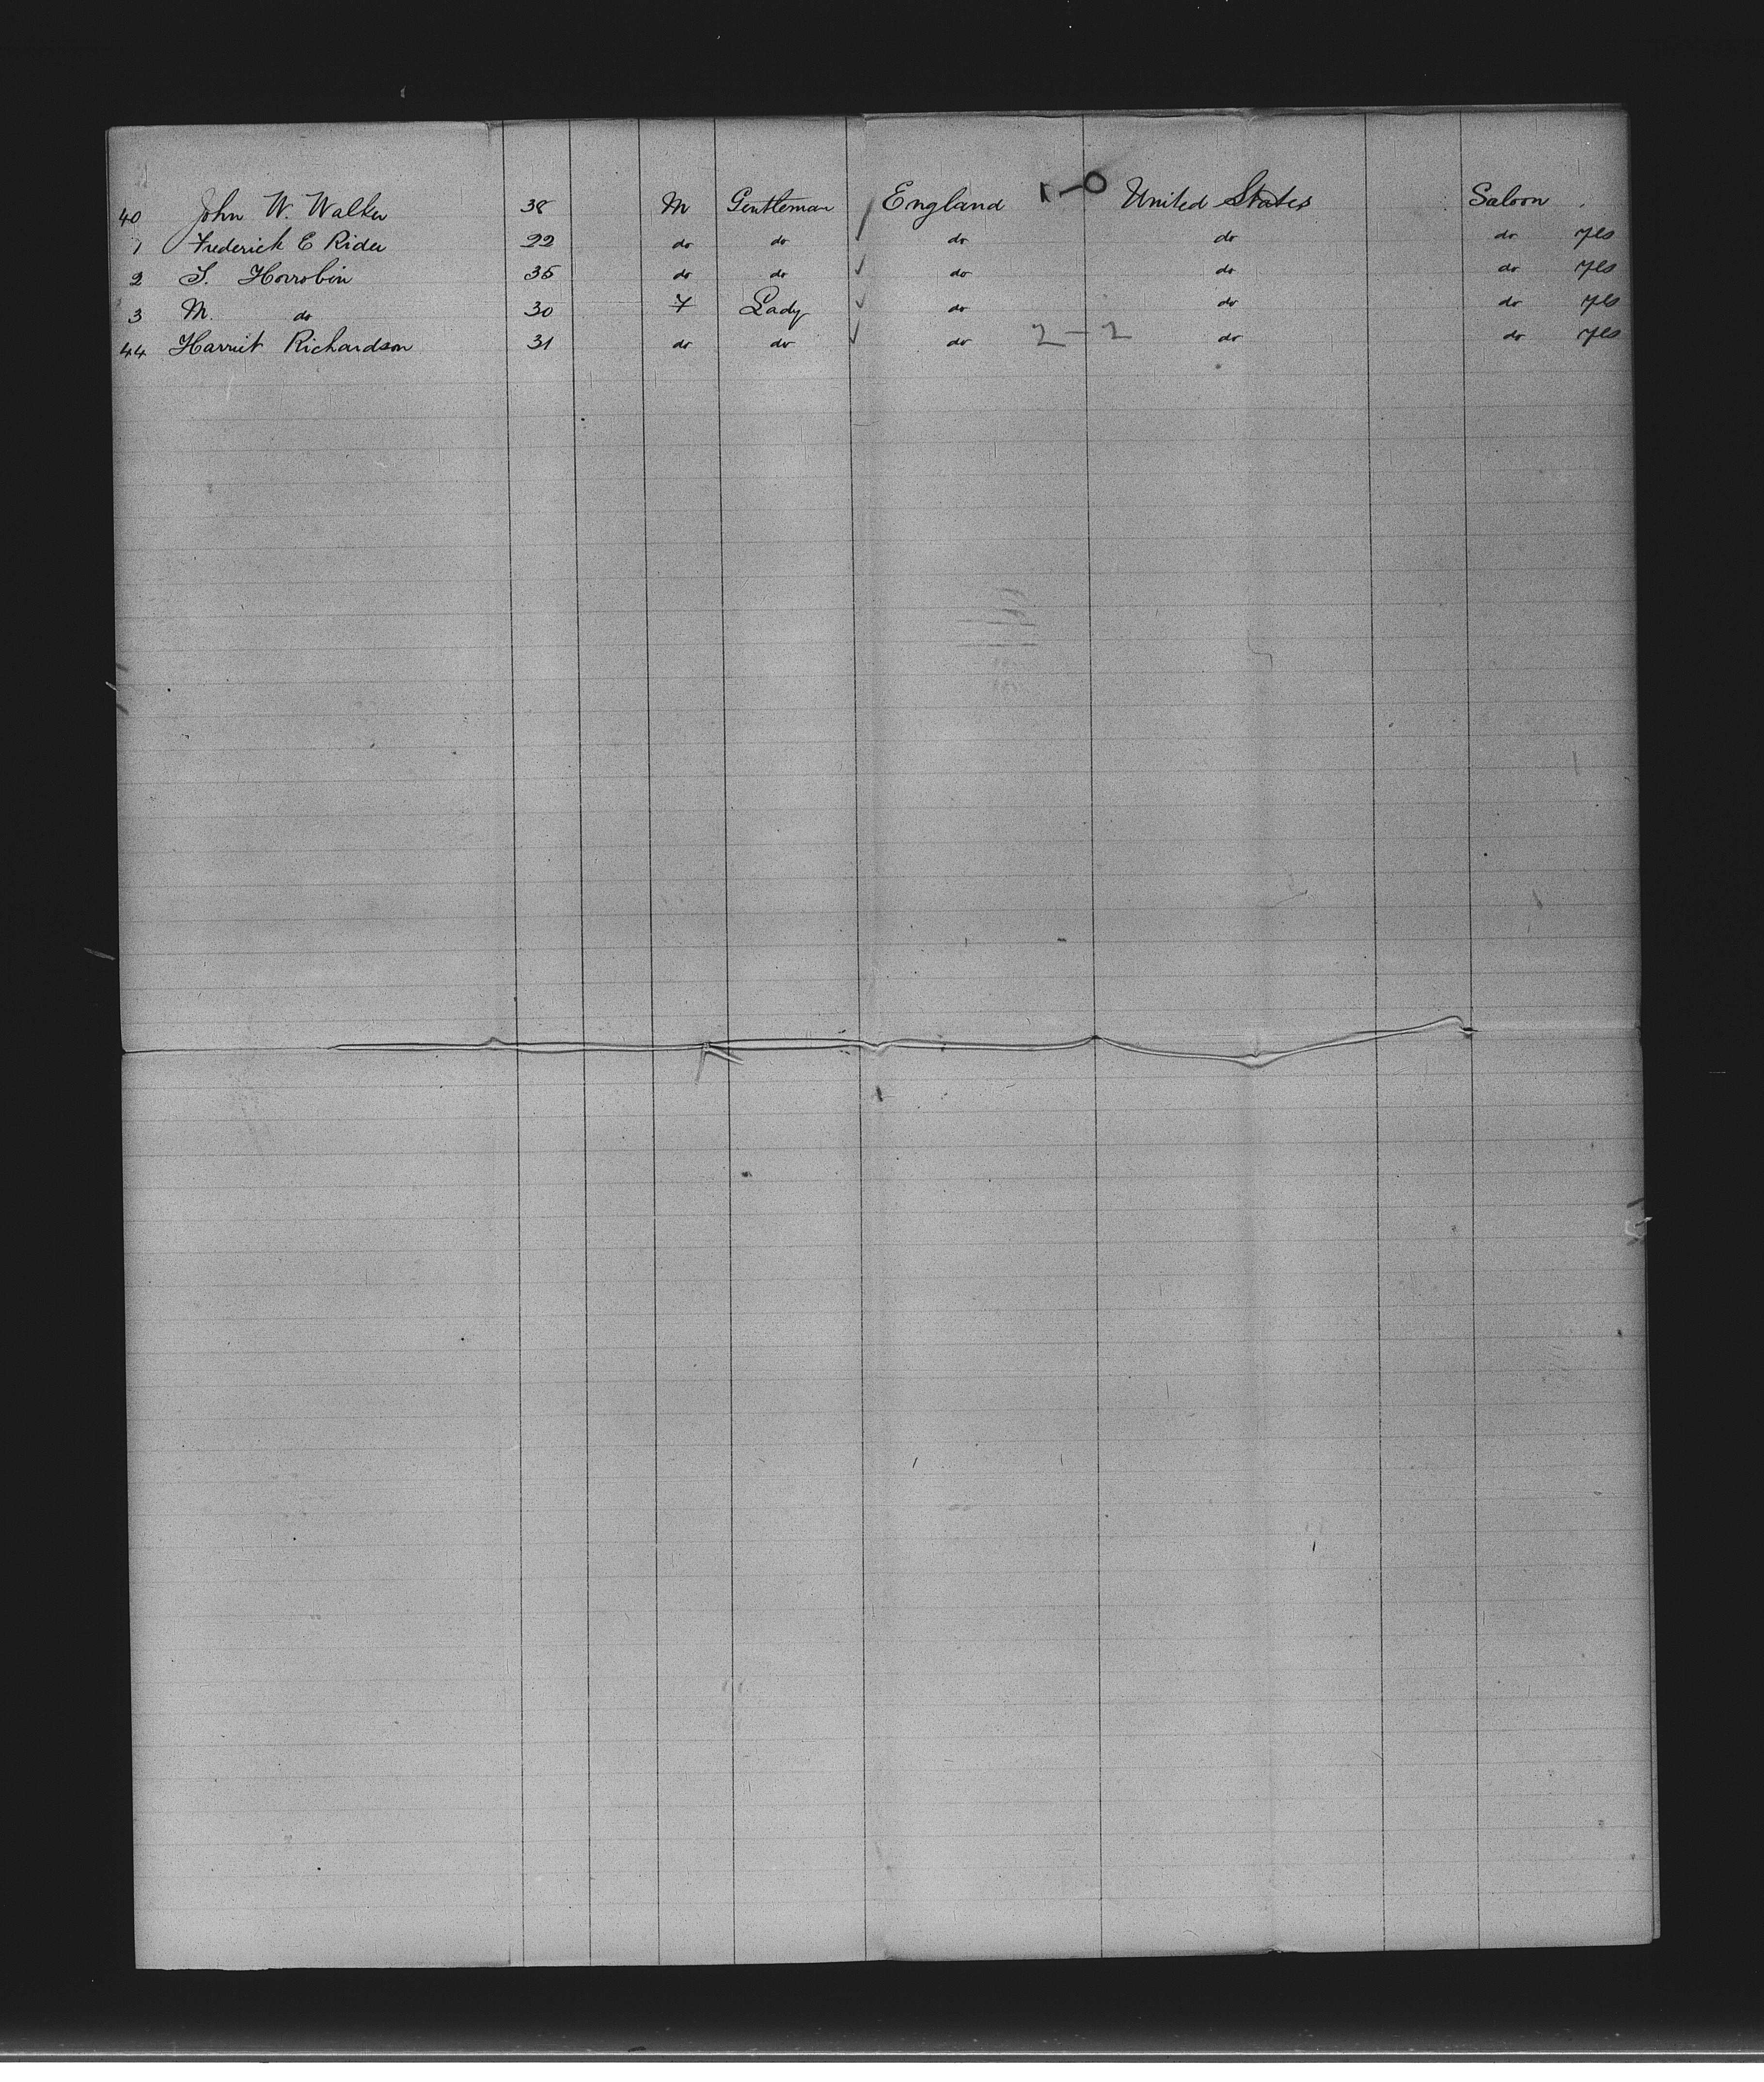 40 John W. Walker 38 M Gentleman England 1-0 United States Saloon
1 Frederick E Rider 22 do do do do do yes
2 S. Horrobin 35 do do do do do yes
3 M. do 30 F Lady do do do yes
44 Harriet Richardson 31 do do do 2-2 do do yes